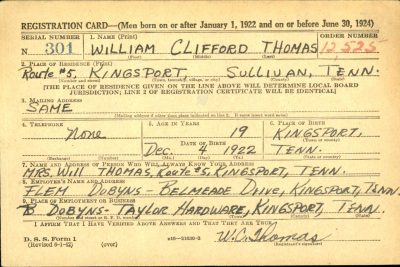 REGISTRATION CARD—(Men born on or after January 1, 1922 and on or before June 30, 1924)
SERIAL NUMBER 1. NAME (Print) ORDER NUMBER
N 301 WILLIAM CLIFFORD THOMAS 12,525
(First) (Middle) (Last)
2. PLACE OF RESIDENCE (Print)
Route #5, KINGSPORT SULLIVAN, TENN.
(Number and street) (Town, township, village, or city) (County) (State)
[THE PLACE OF RESIDENCE GIVEN ON THE LINE ABOVE WILL DETERMINE LOCAL BOARD
JURISDICTION; LINE 2 OF REGISTRATION CERTIFICATE WILL BE IDENTICAL]
3. MAILING ADDRESS
SAME
[Mailing address if other than place indicated on line 2. If same insert word same]
4. TELEPHONE 5. AGE IN YEARS 6. PLACE OF BIRTH
None 19 KINGSPORT,
DATE OF BIRTH (Town or county)
Dec 4 1922 TENN.
(Exchange) (Number) (Mo.) (Day) (Yr.) (State or country)
7. NAME AND ADDRESS OF PERSON WHO WILL ALWAYS KNOW YOUR ADDRESS
MRS. Will THOMAS, Route #5, KINGSPORT, TENN.
8. EMPLOYER'S NAME AND ADDRESS
FLEM DOBYNS - BELMEADE Drive, KINGSPORT, TENN.
9. PLACE OF EMPLOYMENT OR BUSINESS
DOBYNS-TAYLOR HARDWARE, KINGSPORT, TENN.
(Number and street or R. F. D. number) (Town) (County) (State)
I AFFIRM THAT I HAVE VERIFIED ABOVE ANSWERS AND THAT THEY ARE TRUE.
D. S. S. Form 1
(Revised 6-1-42) (over) W.C. Thomas
(Registrant's signature)